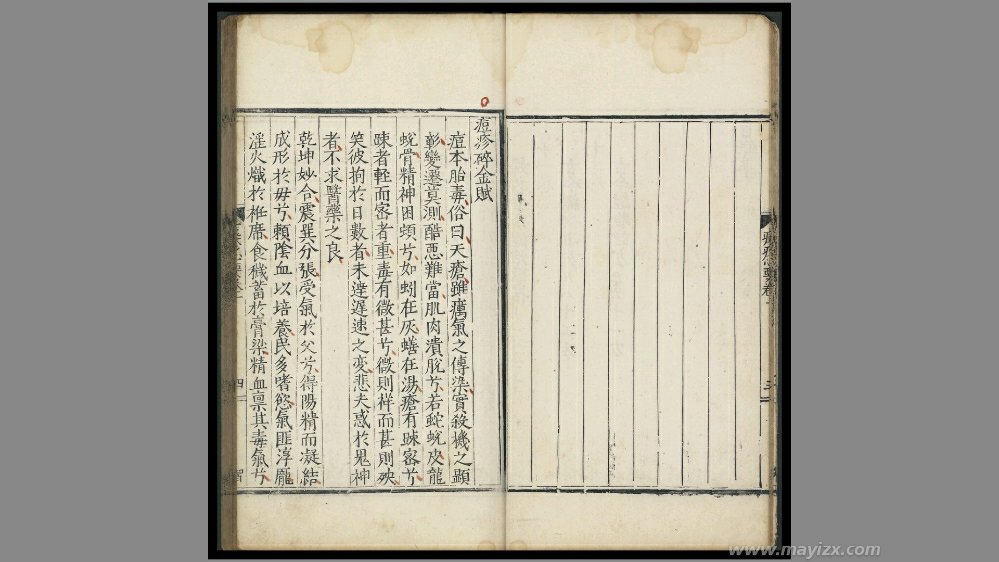 痘疹碎金賦
痘本胎毒俗曰天瘡雖癘氣之傳染實殺機之顯
彰變遷莫測酷惡難當肌肉潰脫兮若蛇蛻皮龍
蛻骨精神困煩兮如蚓在灰蟮在湯瘡有踈密兮
踈者輕而密者重毒有微甚兮微則祥而甚則殃
笑彼拘於日數者未達遲速之變悲夫惑於鬼神
者不求醫藥之良
乾坤妙合震巽分張受氣於父兮得陽精而凝結
成形於母兮賴陰血以培養民多嗜慾氣匪淳龐
淫火熾於袵席食穢蓄於膏粱精血禀其毒氣兮
四
三
www.mayizx.com